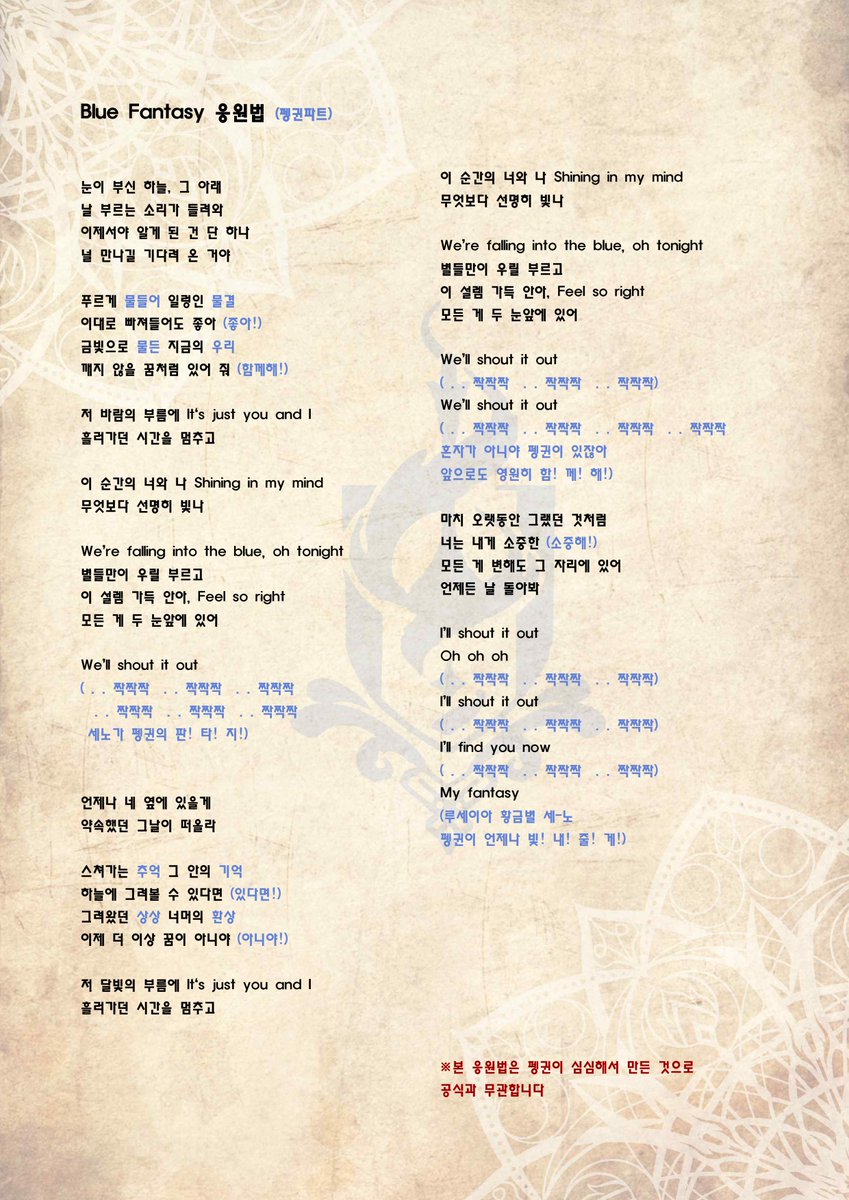 Blue Fantasy 응원법 (펭권파트)
눈이 부신 하늘, 그 아래
날 부르는 소리가 들려와
이제서야 알게 된 건 단 하나
널 만나길 기다려 온 거야
푸르게 물들어 일렁인 물결
이대로 빠져들어도 좋아 (좋아!)
금빛으로 물든 지금의 우리
깨지 않을 꿈처럼 있어 줘 (함께해!)
저 바람의 부름에 It's just you and I
흘러가던 시간을 멈추고
이 순간의 너와 나 Shining in my mind
무엇보다 선명히 빛나
We're falling into the blue, oh tonight
별들만이 우릴 부르고
이 설렘 가득 안아, Feel so right
모든 게 두 눈앞에 있어
We'll shout it out
( . . 짝짝짝 . . 짝짝짝 . . 짝짝짝
. . 짝짝짝 . . 짝짝짝 . . 짝짝짝
세노가 펭권의 판! 타! 지!)
언제나 네 옆에 있을게
약속했던 그날이 떠올라
스쳐가는 추억 그 안의 기억
하늘에 그려볼 수 있다면 (있다면!)
그려왔던 상상 너머의 환상
이제 더 이상 꿈이 아니야 (아니야!)
저 달빛의 부름에 It's just you and I
흘러가던 시간을 멈추고
이 순간의 너와 나 Shining in my mind
무엇보다 선명히 빛나
We're falling into the blue, oh tonight
별들만이 우릴 부르고
이 설렘 가득 안아, Feel so right
모든 게 두 눈앞에 있어
We'll shout it out
( . . 짝짝짝 . . 짝짝짝 . . 짝짝짝)
We'll shout it out
( . . 짝짝짝 . . 짝짝짝 . . 짝짝짝 . . 짝짝짝
혼자가 아니야 펭권이 있잖아
앞으로도 영원히 함! 께! 해!)
마치 오랫동안 그랬던 것처럼
너는 내게 소중한 (소중해!)
모든 게 변해도 그 자리에 있어
언제든 날 돌아봐
I'll shout it out
Oh oh oh
( . . 짝짝짝 . . 짝짝짝 . . 짝짝짝)
I'll shout it out
( . . 짝짝짝 . . 짝짝짝 . . 짝짝짝)
I'll find you now
( . . 짝짝짝 . . 짝짝짝 . . 짝짝짝)
My fantasy
(루세이아 황금별 세-노
펭권이 언제나 빛! 내! 줄! 게!)
※본 응원법은 펭권이 심심해서 만든 것으로
공식과 무관합니다